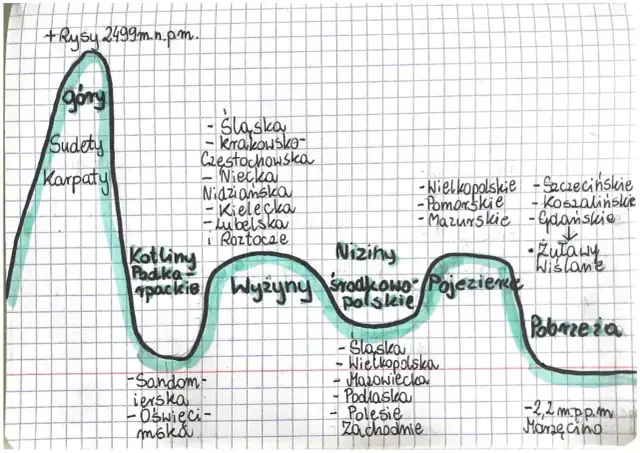 + Rysy 2499m.n.p.m.
góry
Sudety
Karpaty
Kotliny
Podka-
rpackie
- Sandom-
ierska
- Oświęci-
mska
- Śląska
- Krakowsko-
Częstochowska
- Niecka
Nidziańska
- Kielecka
- Lubelska
i Roztocze
Wyżyny
Niziny
środkowo-
polskie
- Śląska
- Wielkopolska
- Mazowiecka
- Podlaska
- Polesie
Zachodnie
- Wielkopolskie
- Pomorskie
- Mazurskie
Pojezierza
- Szczecińskie
- Koszalińskie
- Gdańskie
↓
• Żuławy
Wiślane
Pobrzeża
-2,2 m.p.p.m
Marzęcino